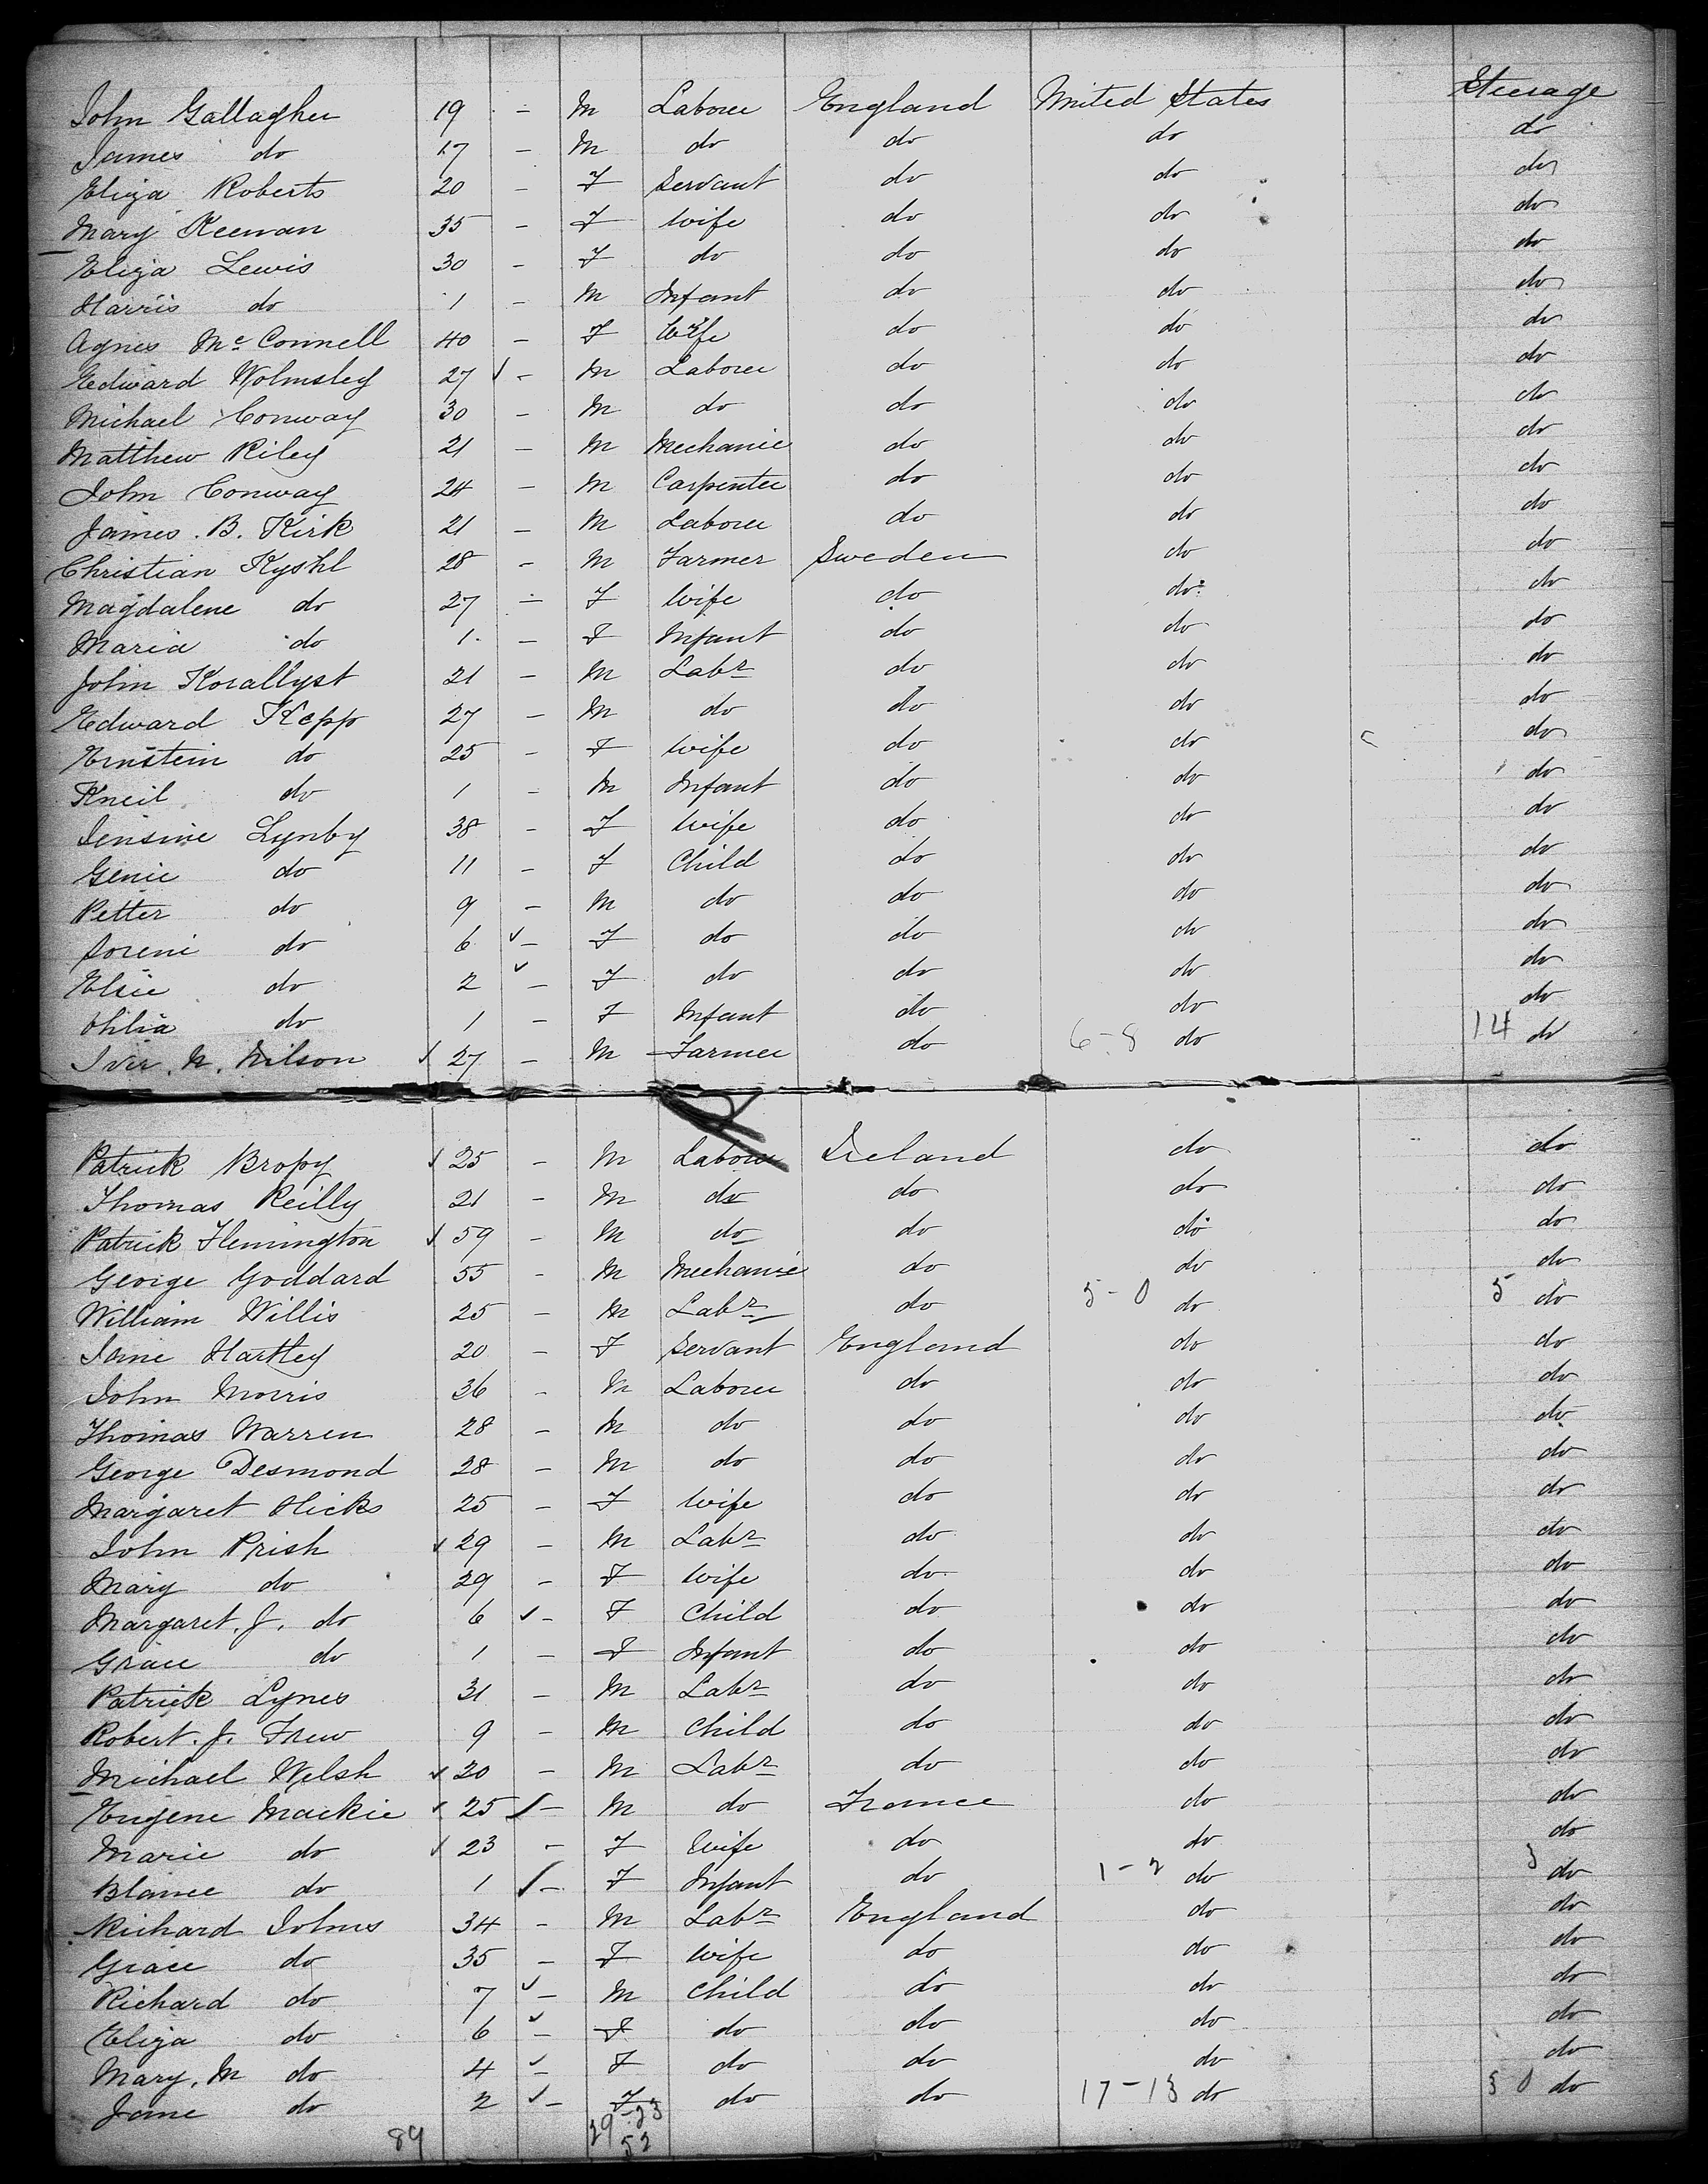 John Gallagher 19 - M Laborer England United States Steerage
James do 17 - M do do do do
Eliza Roberts 20 - F Servant do do do
Mary Keenan 35 - F Wife do do do
Eliza Lewis 30 - F do do do do
Harris do 1 - M Infant do do do
Agnes Mc Connell 40 - F Wife do do do
Edward Wolmsley 27 - M Laborer do do do
Michael Conway 30 - M do do do do
Matthew Riley 21 - M Mechanic do do do
John Conway 24 - M Carpenter do do do
James. B. Kirk 21 - M Laborer do do do
Christian Kyshl 28 - M Farmer Sweden do do
Magdalene do 27 - F Wife do do do
Maria do 1 - F Infant do do do
John Korallyst 21 - M Labr do do do
Edward Kepp 27 - M do do do do
Ernstein do 25 - F Wife do do do
Kneil do 1 - M Infant do do do
Jensine Lynby 38 - F Wife do do do
Genie do 11 - F Child do do do
Petter do 9 - M do do do do
Soreni do 6 - F do do do do
Elsie do 2 - F do do do do
do 1 - F Infant do do do
Iver. N. Nilson 27 - M Farmer do 6-8 do 14 do
Patrick Bropy 25 - M Laborer Ireland do do
Thomas Reilly 21 - M do do do do
Patrick Flemington 59 - M do do do do
George Goddard 55 - M Mechanic do do do
William Willis 25 - M Labr do 5-0 do 5 do
Jane Hartley 20 - F Servant England do do
John Morris 36 - M Laborer do do do
Thomas Warren 28 - M do do do do
George Desmond 28 - M do do do do
Margaret Hicks 25 - F Wife do do do
John Prish 29 - M Labr do do do
Mary do 29 - F Wife do do do
Margaret. J. do 6 - F Child do do do
Grace do 1 - F Infant do do do
Patrick Lynes 31 - M Labr do do do
Robert. J. Frew 9 - M Child do do do
Michael Welsh 20 - M Labr do do do
Eugene Mackie 25 - M do France do do
Marie do 23 - F Wife do do do
Blance do 1 - F Infant do 1-2 do 3 do
Richard Johns 34 - M Labr England do do
Grace do 35 - F Wife do do do
Richard do 7 - M Child do do do
Eliza do 6 - F do do do do
Mary. M do 4 - F do do do do
Jane do 2 - F do do 17-13 do 30 do
29-23
89 52